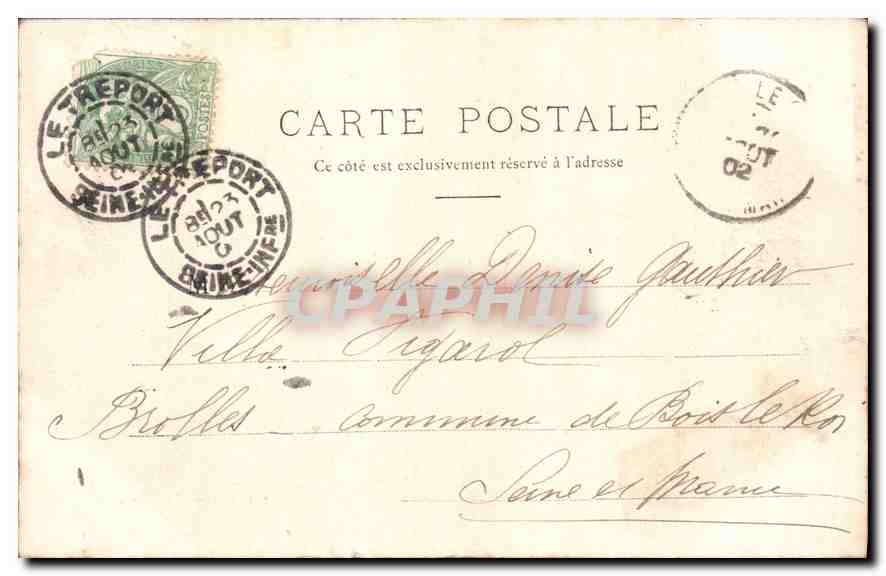 CARTE POSTALE
Ce côté est exclusivement réservé à l'adresse
LE TREPORT
8E 23
AOUT
SEINE-INFRE
LE TREPORT
8E 23
AOUT
SEINE-INFRE
POSTES
LE
AOUT
02
Mademoiselle Denise Gauthier
Villa Figarol
Brolles commune de Bois le Roi
Seine et Marne
CPAPHIL